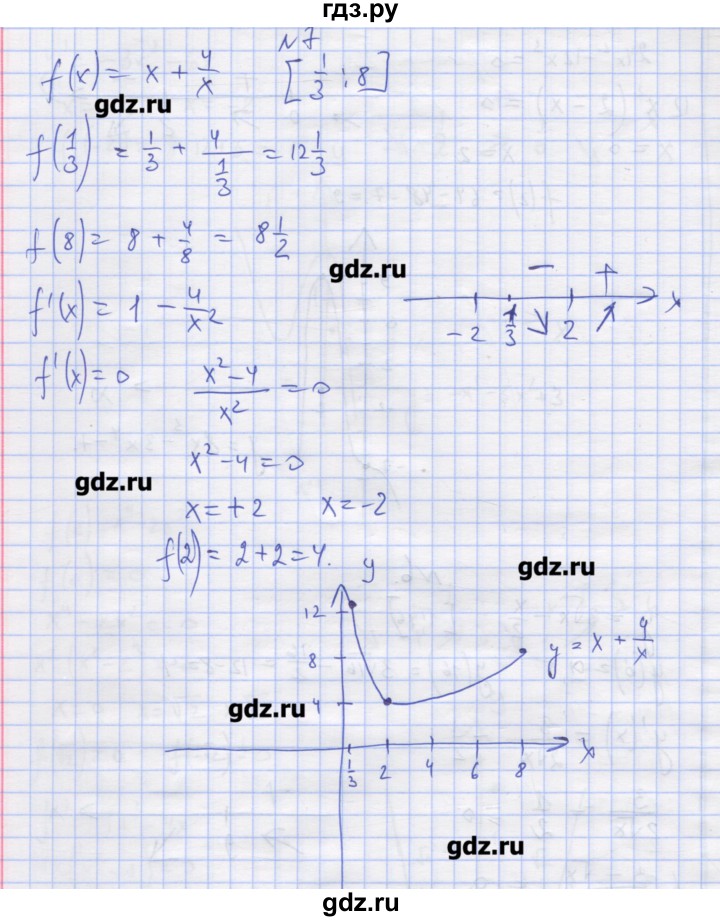 гдз.ру
N7
f(x) = x + 4/x [1/3 ; 8]
gdz.ru
f(1/3) = 1/3 + 4/(1/3) = 12 1/3
f(8) = 8 + 4/8 = 8 1/2
gdz.ru
− +
-2 1/3 ↘ 2 ↗ x
f'(x) = 1 − 4/x²
f'(x) = 0 (x² − 4)/x² = 0
x² − 4 = 0
gdz.ru
x = +2 x = −2
f(2) = 2 + 2 = 4.
gdz.ru
y
12
8
4
y = x + 4/x
gdz.ru
1/3 2 4 6 8 x
gdz.ru